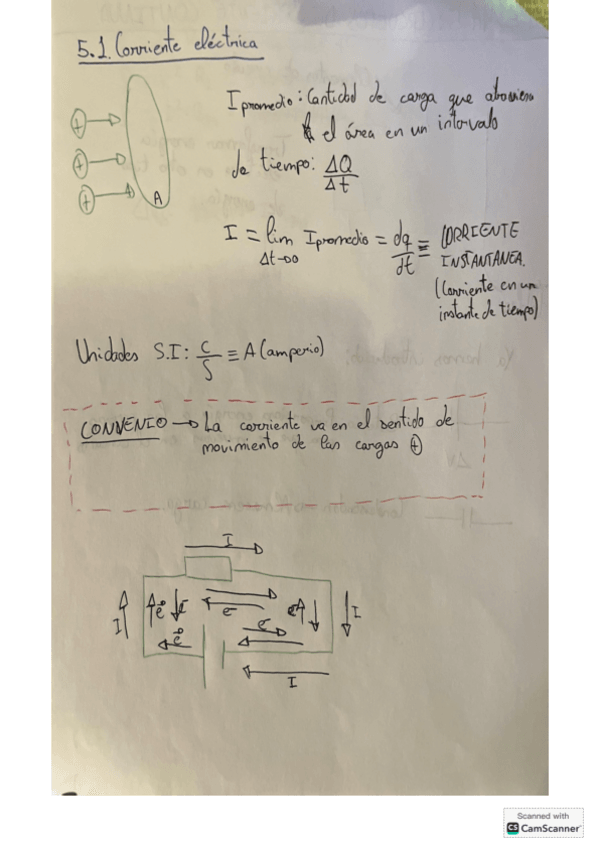 5.1. Corriente eléctrica
I promedio: Cantidad de carga que atraviesa
el área en un intervalo
de tiempo: ΔQ
Δt
A
I = lim I promedio = dq ≡ CORRIENTE
Δt→0 dt INSTANTANEA.
(Corriente en un
instante de tiempo)
Unidades S.I: C ≡ A (amperio)
S
CONVENIO → La corriente va en el sentido de
movimiento de las cargas ⊕
I
I
e
e
e
e
I
e
e
I
Scanned with
CS CamScanner